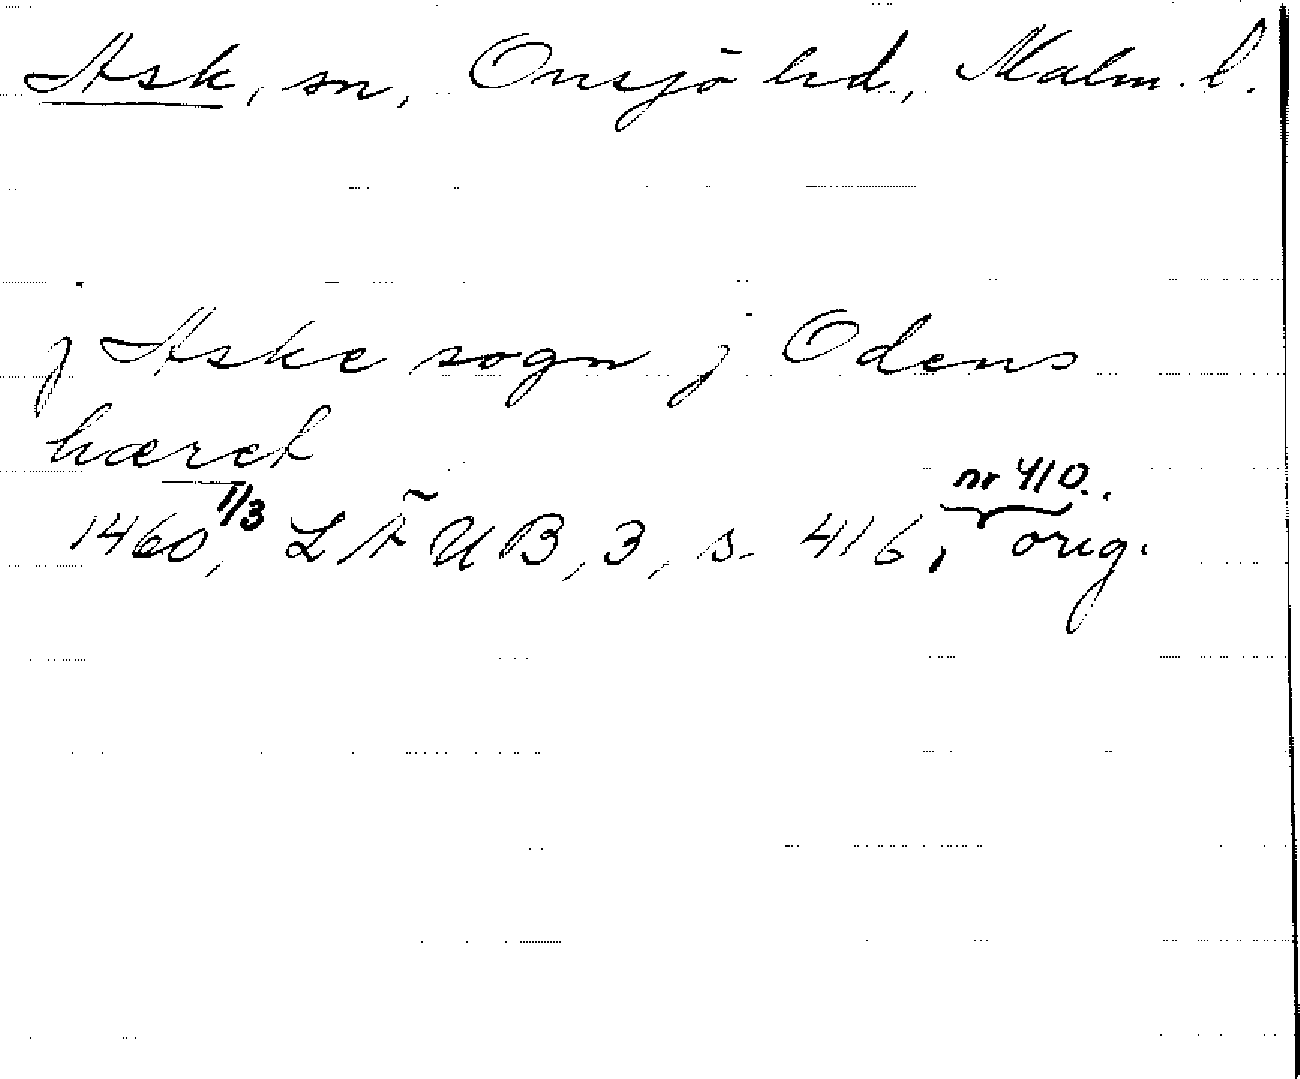 Ask, sn, Onsjö hd., Malm. l.
j Aske sogn j Odens
hæret
1460 1/3, LÄUB, 3, s. 416, nr 410., orig.